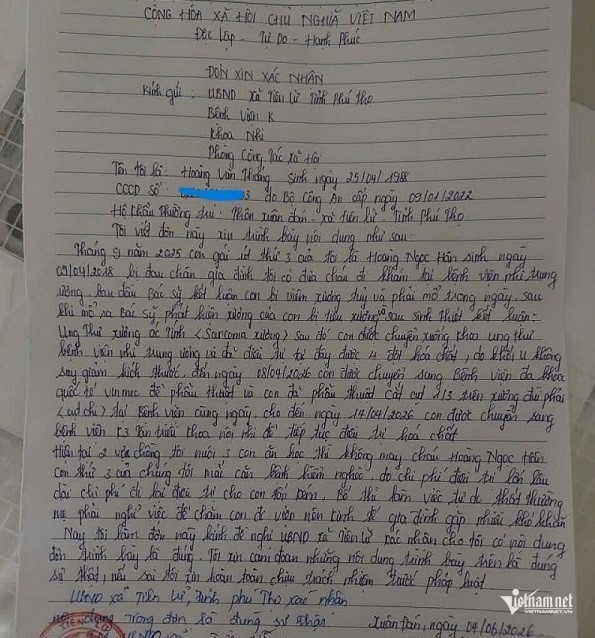 CỘNG HÒA XÃ HỘI CHỦ NGHĨA VIỆT NAM
Độc Lập - Tự Do - Hạnh Phúc
ĐƠN XIN XÁC NHẬN
Kính gửi: UBND xã Tiên Lữ Tỉnh Phú Thọ
Bệnh Viện K
Khoa Nhi
Phòng Công Tác Xã Hội
Tên tôi là: Hoàng Văn Thắng sinh ngày 25/04/1988
CCCD số: 3 do Bộ Công An cấp ngày 09/01/2022
Hộ khẩu thường trú: Thôn Xuân đán - xã Tiên Lữ - Tỉnh Phú Thọ
Tôi viết đơn này xin trình bày nội dung như sau
Tháng 9 năm 2025 con gái út thứ 3 của tôi là Hoàng Ngọc Hân sinh ngày
09/04/2018 bị đau chân gia đình tôi có đưa cháu đi khám tại bệnh viện nhi trung
ương, ban đầu Bác sỹ kết luận con bị viêm xương tủy và phải mổ trong ngày, sau
khi mổ ra Bác sỹ phát hiện xương của con bị tiêu xương sau sinh thiết kết luận:
Ung thư xương ác tính (Sarcoma xương) sau đó con được chuyển xuống khoa ung thư
bệnh viện nhi trung ương và đã điều trị từ đấy được 4 đợt hóa chất, do khối u không
suy giảm kích thước, đến ngày 08/04/2026 con được chuyển sang Bệnh viện đa khoa
quốc tế vinmec để phẫu thuật và con đã phẫu thuật cắt cụt 1/3 trên xương đùi phải
(cụt chi) tại Bệnh viện cùng ngày, cho đến ngày 14/04/2026 con được chuyển sang
bệnh viện K3 Tân triều khoa nội nhi để tiếp tục điều trị hóa chất
Hiện tại 2 vợ chồng tôi nuôi 3 con ăn học thì không may cháu Hoàng Ngọc Hân
con thứ 3 của chúng tôi mắc căn bệnh hiểm nghèo, do chi phí điều trị lớn lâu
dài chi phí đi lại điều trị cho con tốn kém, Bố thì làm việc tự do thất thường
mẹ phải nghỉ việc để chăm con đi viện nên kinh tế gia đình gặp nhiều khó khăn
Nay tôi làm đơn này kính đề nghị UBND xã Tiên Lữ xác nhận cho tôi có nội dung
đơn trình bày là đúng. Tôi xin cam đoan những nội dung trình bày trên là đúng
sự thật, nếu sai tôi xin hoàn toàn chịu trách nhiệm trước pháp luật
UBND xã Tiên Lữ, tỉnh phú Thọ xác nhận
nội dung trong đơn là đúng sự thật Xuân Đán, ngày 04/06/2026
vietnamnet
VIETNAMNET.VN